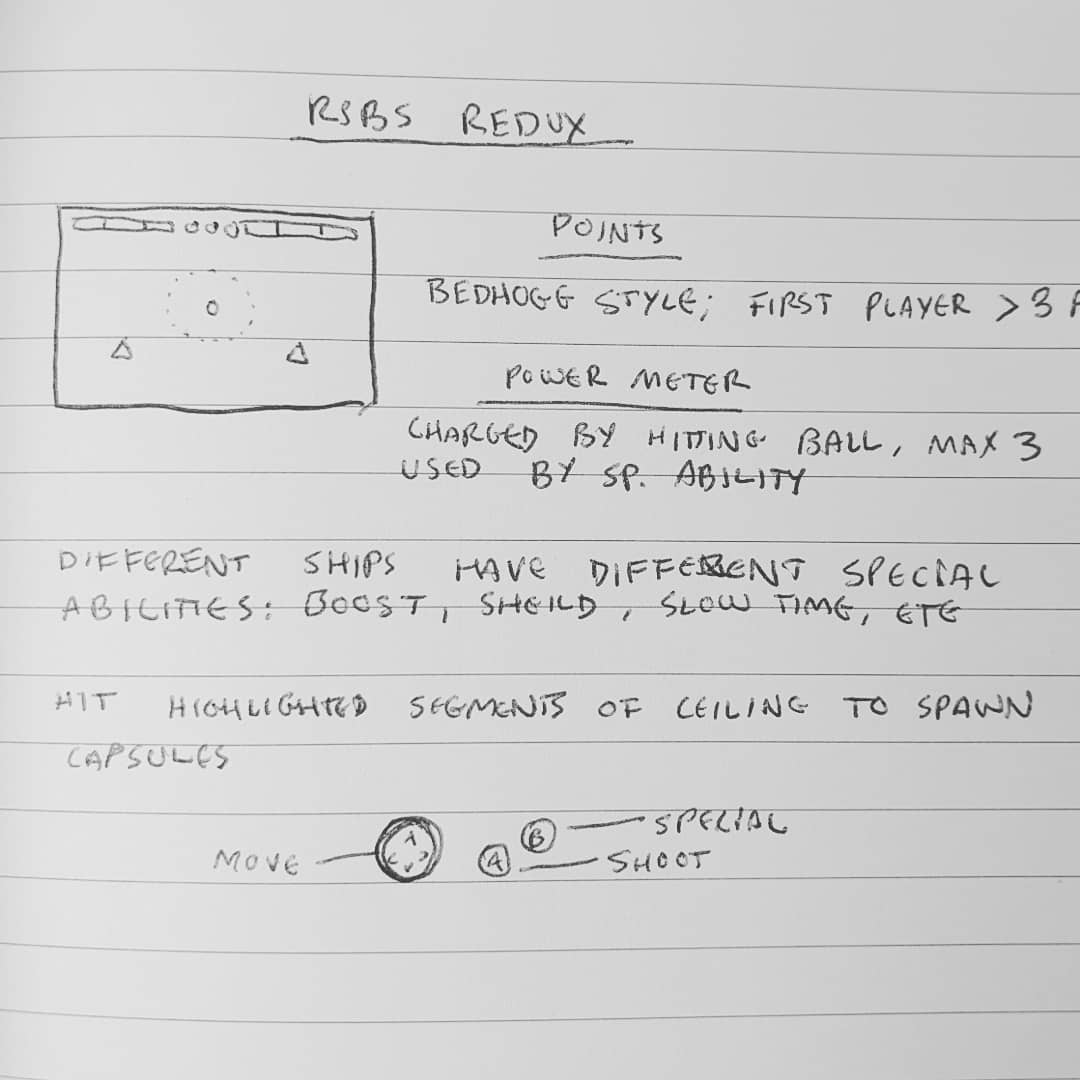 RSBS REDUX
POINTS
BEDHOGG STYLE; FIRST PLAYER > 3 P
POWER METER
CHARGED BY HITTING BALL, MAX 3
USED BY SP. ABILITY
DIFFERENT SHIPS HAVE DIFFERENT SPECIAL
ABILITIES: BOOST, SHEILD, SLOW TIME, ETC
HIT HIGHLIGHTED SEGMENTS OF CEILING TO SPAWN
CAPSULES
B SPECIAL
MOVE A SHOOT